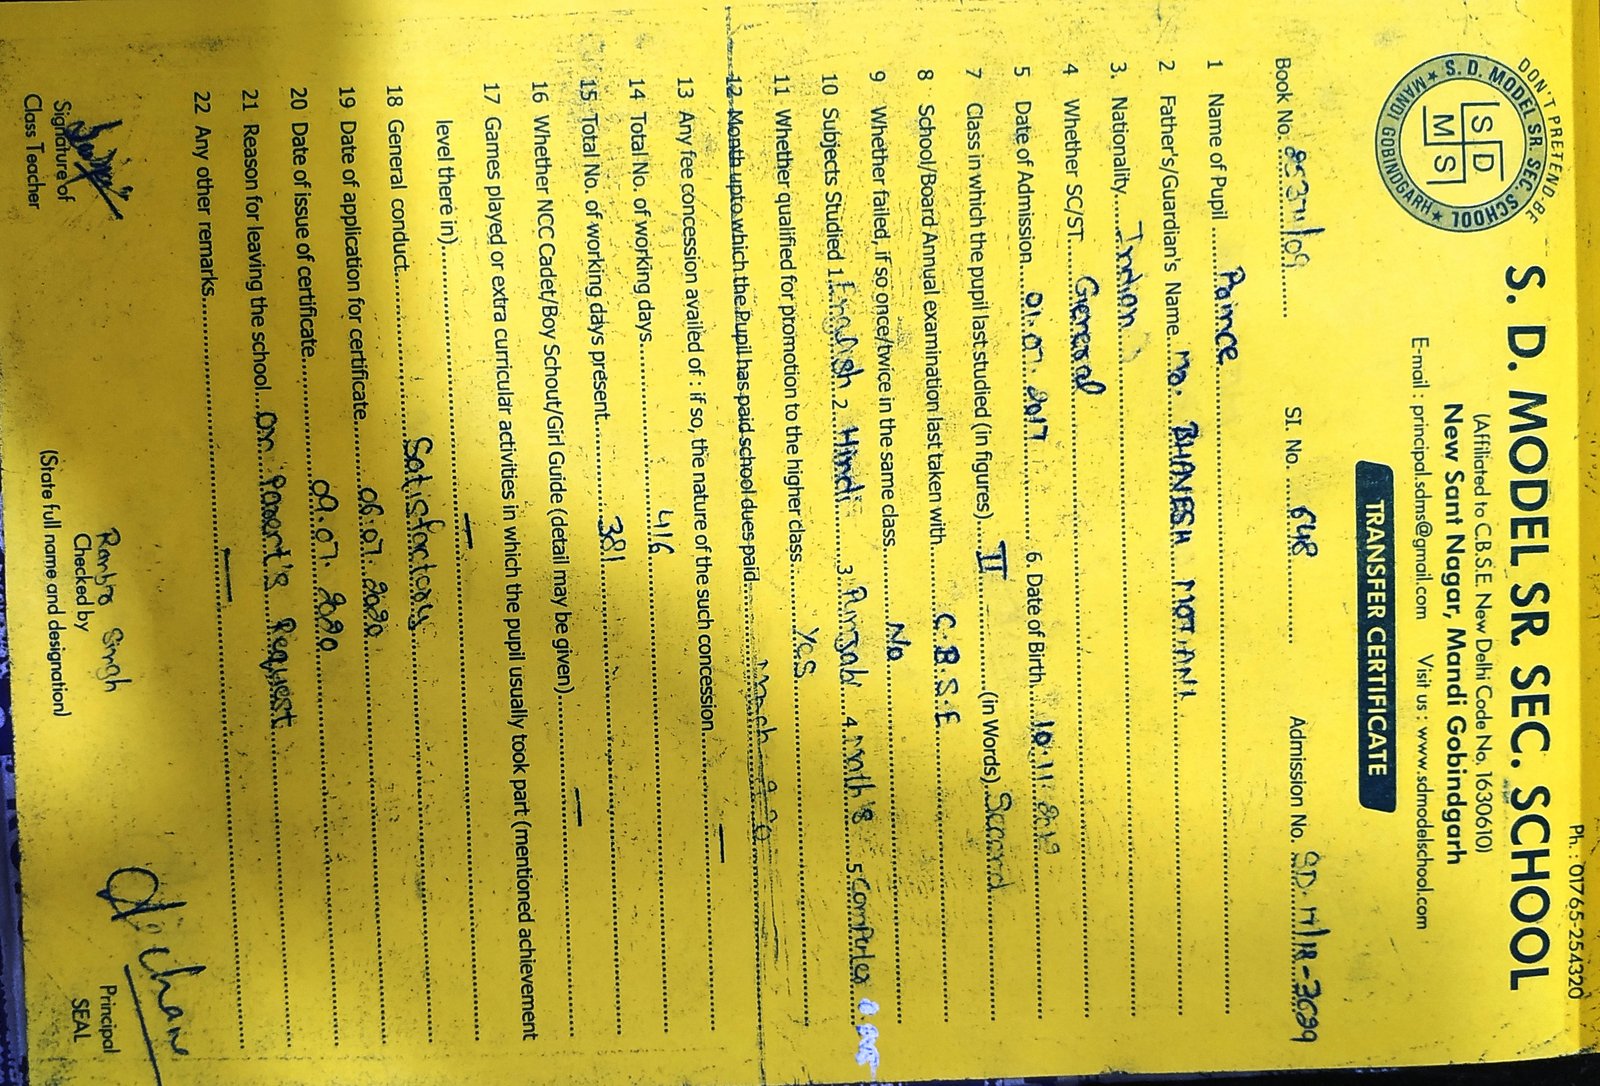 Ph. : 01765-254320
DON'T PRETEND-BE
S. D. MODEL SR. SEC. SCHOOL
★ MANDI GOBINDGARH ★
S D
M S
S. D. MODEL SR. SEC. SCHOOL
(Affiliated to C.B.S.E. New Delhi Code No. 1630610)
New Sant Nagar, Mandi Gobindgarh
E-mail : principal.sdms@gmail.com Visit us : www.sdmodelschool.com
TRANSFER CERTIFICATE
Book No. SI. No. 648 Admission No. SD.17/18-3099
1 Name of Pupil Prince
2 Father's/Guardian's Name Mr. BHANESH MOTANI
3. Nationality Indian
4 Whether SC/ST General
5 Date of Admission 01.07.2017 6. Date of Birth 10.11.2012
7 Class in which the pupil last studied (in figures) II (in Words) Second
8 School/Board Annual examination last taken with C.B.S.E
9 Whether failed, if so once/twice in the same class No
10 Subjects Studied 1. English 2. Hindi 3. Punjabi 4. Math's 5 Computer
11 Whether qualified for promotion to the higher class Yes
12 Month upto which the Pupil has paid school dues paid
13 Any fee concession availed of : if so, the nature of the such concession —
14 Total No. of working days 416
15 Total No. of working days present 381
16 Whether NCC Cadet/Boy Schout/Girl Guide (detail may be given) —
17 Games played or extra curricular activities in which the pupil usually took part (mentioned achievement
level there in) —
18 General conduct Satisfactory
19 Date of application for certificate 06.07.2020
20 Date of issue of certificate 09.07.2020
21 Reason for leaving the school On Parent's Request
22 Any other remarks —
Signature of
Class Teacher
Singh
Checked by
(State full name and designation)
Principal
SEAL